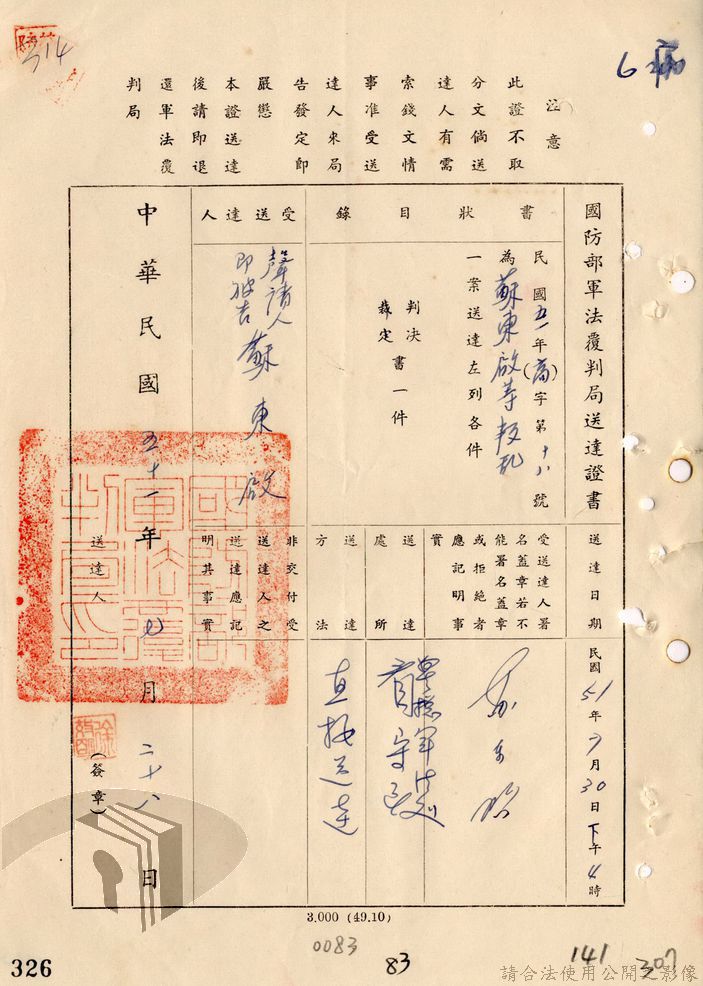 314
6 病
注意
此證不取
分文倘送
達人有需
索錢文情
事准受送
達人來局
告發定即
嚴懲
本證送達
後請即退
還軍法覆
判局
國防部軍法覆判局送達證書
送達日期
民國51年7月30日下午4時
書狀目錄
民國五一年(高)字第十八號
為蘇東啟等叛亂
一案送達左列各件
判決
裁定
書一件
受送達人署
名蓋章若不
能署名蓋章
或拒絕者
應記明事
實
蘇東啟
送達處所
軍法
看守所
送達方法
直接送達
受送達人
聲請人
即被告 蘇東啟
非交付受
送達人之
送達應記
明其事實
中華民國五十一年七月二十八日
送達人
(簽章)
國防部軍法覆判局印
3,000 (49.10)
0083
83
141
307
326
請合法使用公開之影像